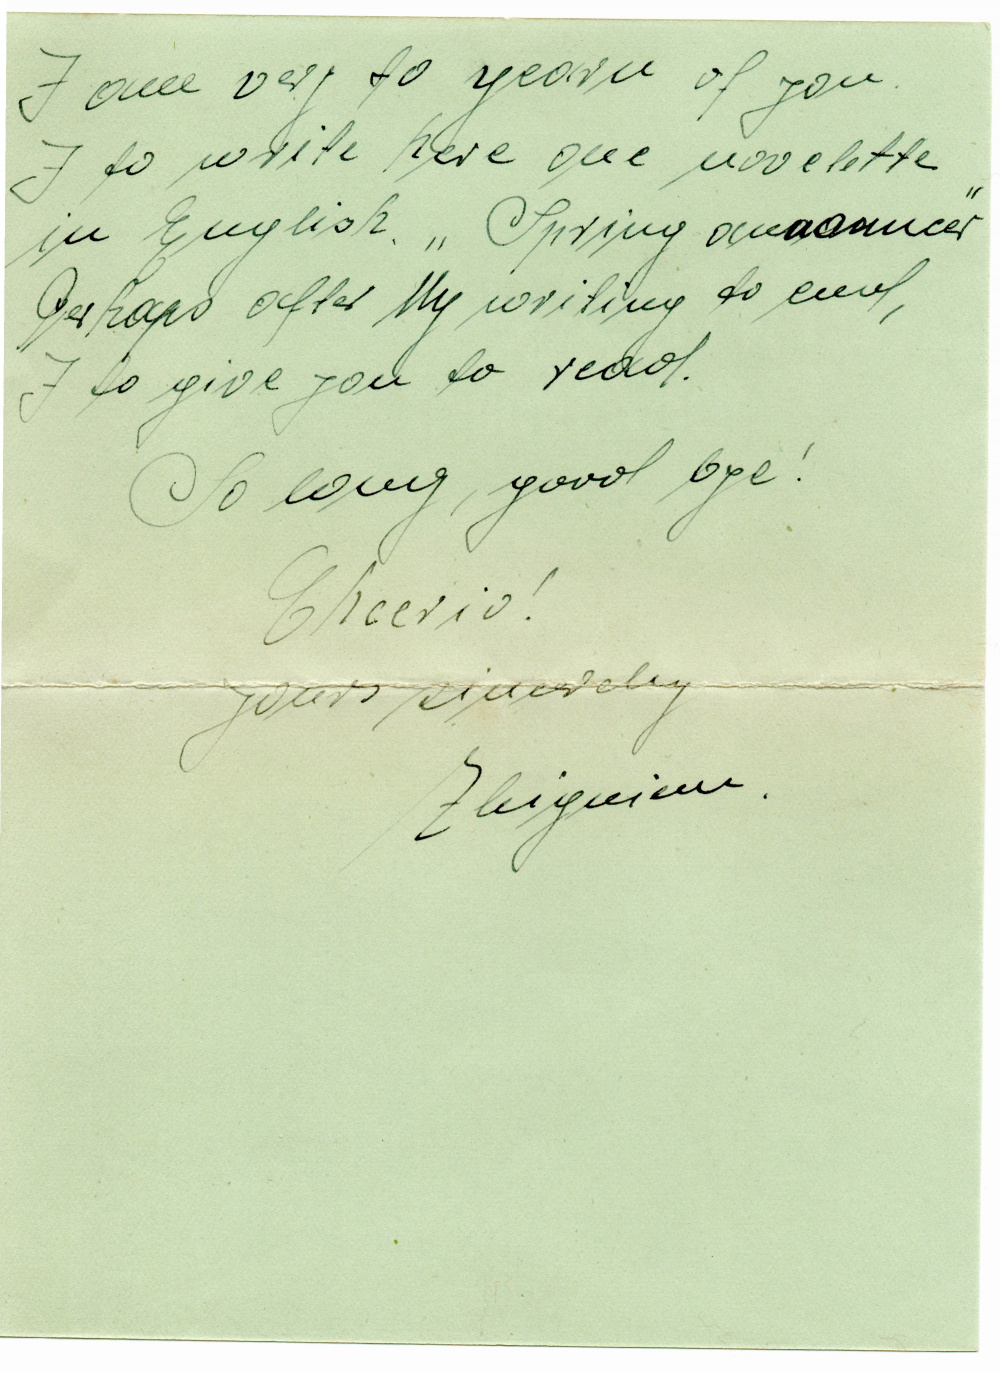 I am very to yearn of you.
I to write here one novelette
in English. „Spring
Perhaps after My writing to end,
I to give you to read.
So long, good bye!
Cheerio!
yours sincerely
Zbigniew.